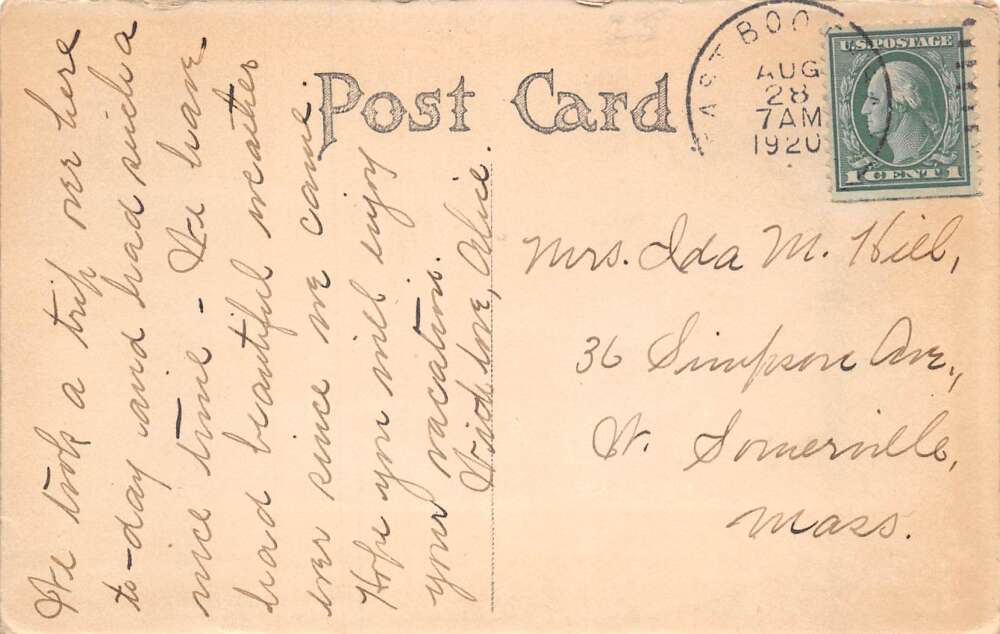 Post Card
EAST BOO
AUG
28
7AM
1920
U.S. POSTAGE
1 CENT 1
We took a trip over here
to-day and had such a
nice time - We have
had beautiful weather
ever since we came.
Hope you will enjoy
your vacation.
With love, Alice.
Mrs. Ida M. Hill,
36 Simpson Ave.,
W. Somerville,
Mass.